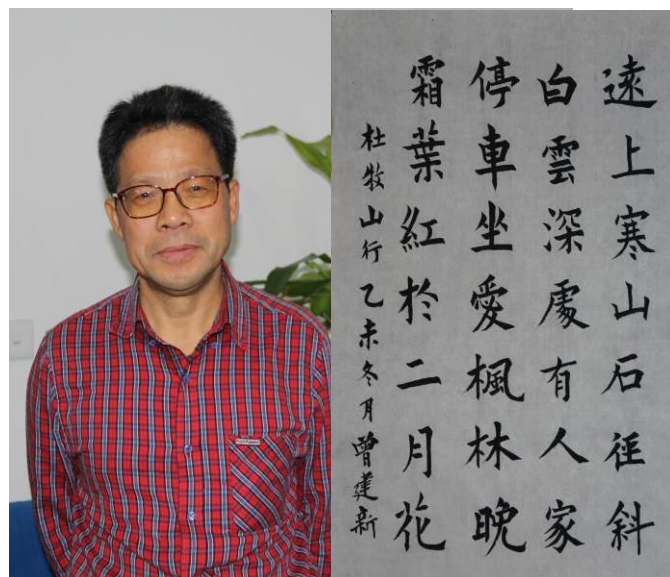 遠上寒山石徑斜
白雲深處有人家
停車坐愛楓林晚
霜葉紅於二月花
杜牧山行乙未冬月曾建新